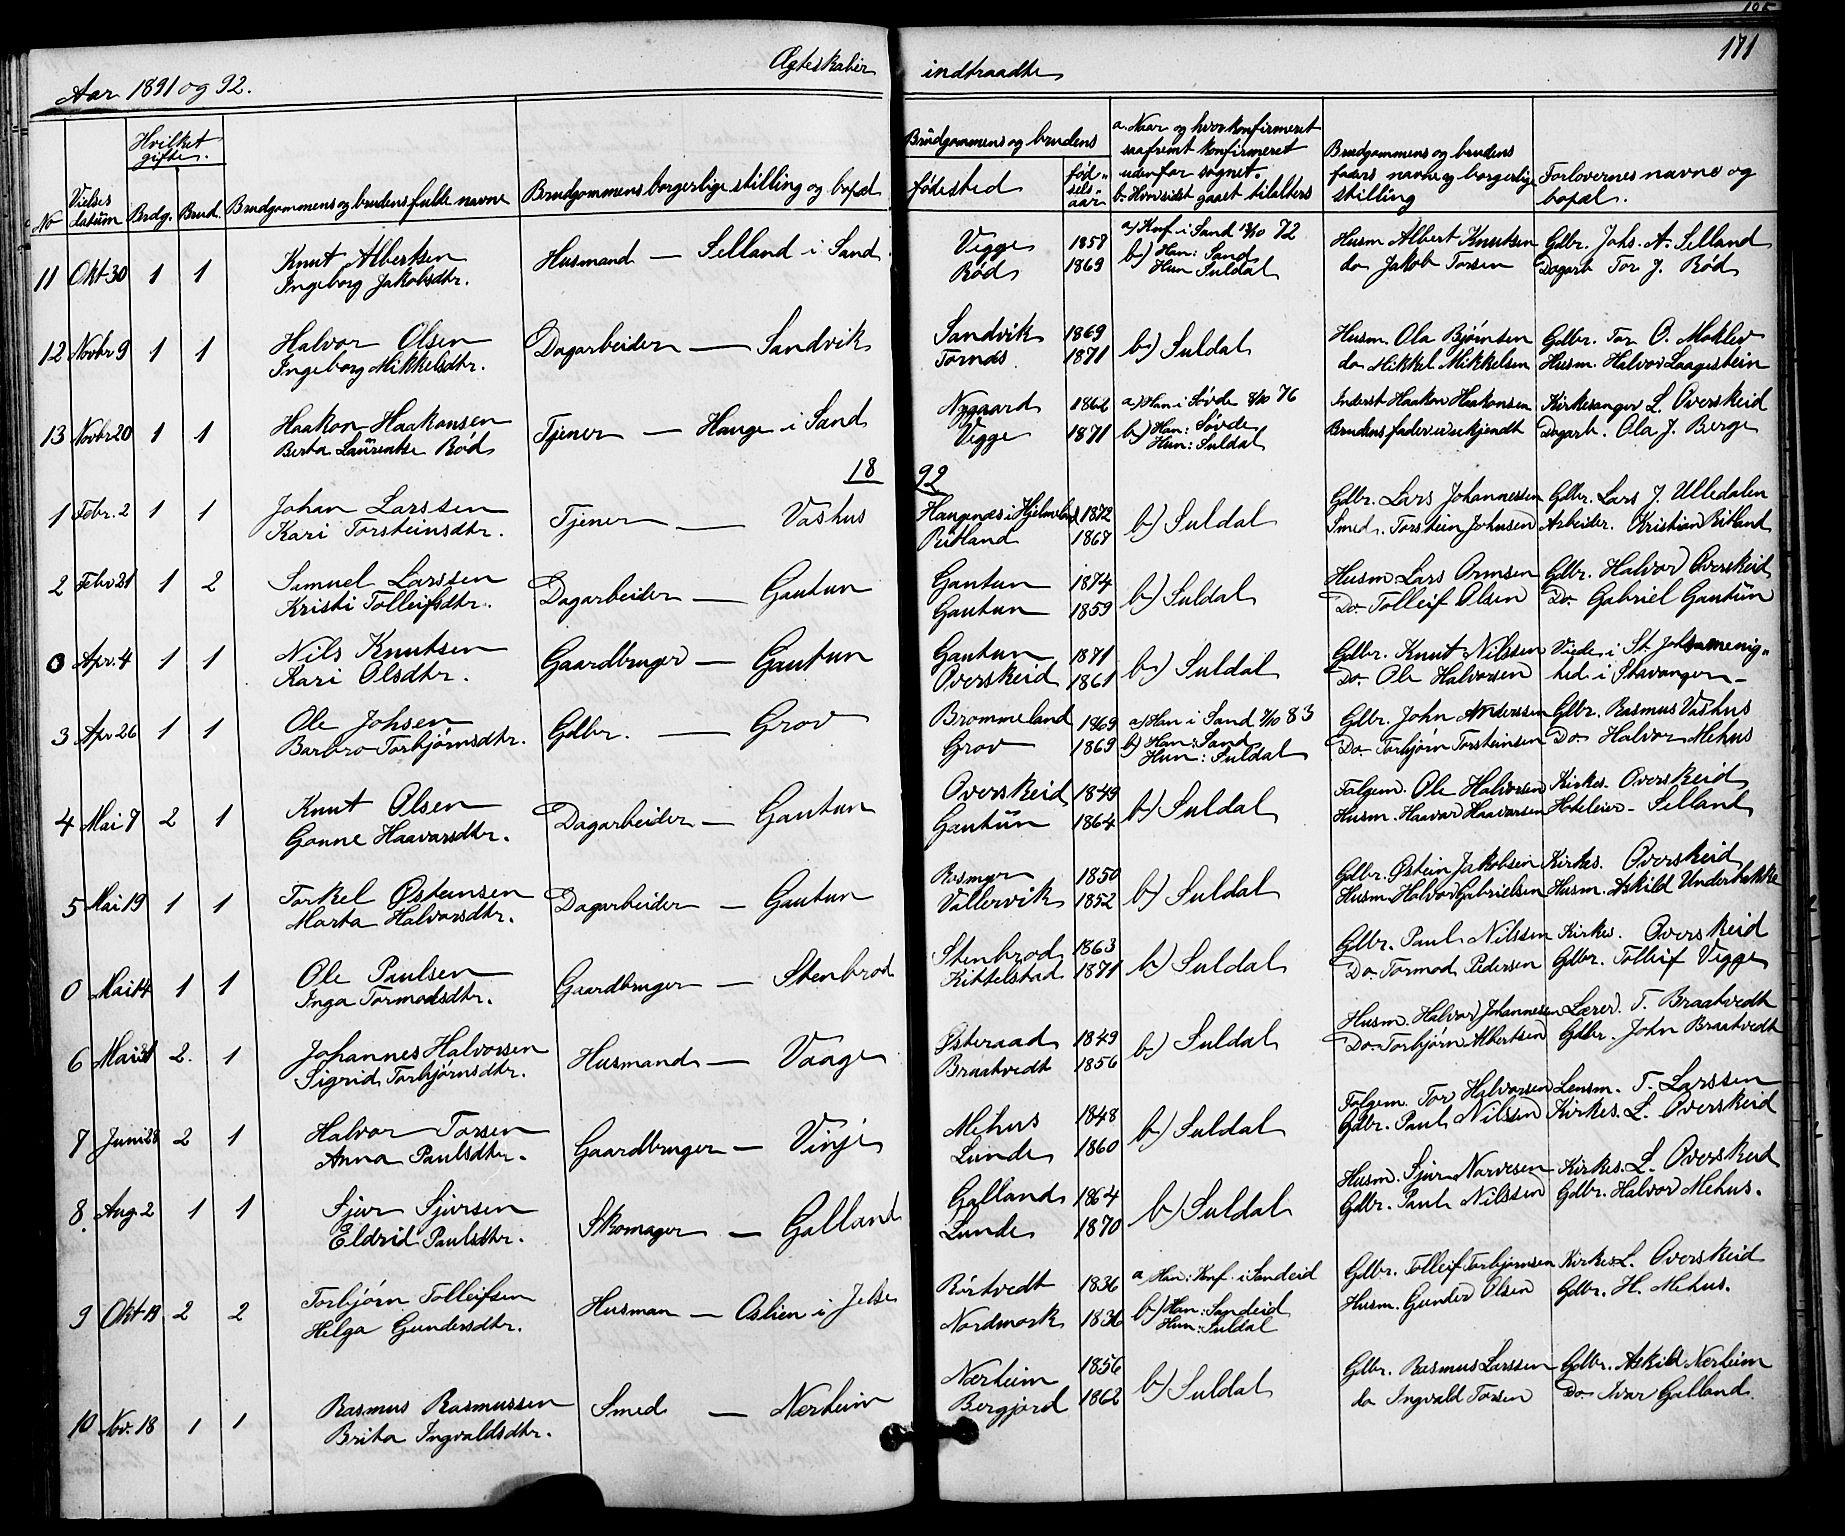 185
171
Aar 1891 og 92. Ægteskaber indtraadte
No Vielses datum Hvilket gifte. Brdg. Brud. Brudgommens og brudens fulde navne Brudgommens borgerlige stilling og bopæl Brudgommens og brudens fødested fødselsaar a. Naar og hvor konfirmeret saafremt konfirmeret udenfor sognet. b. Hvor sidst gaaet til alters Brudgommens og brudens faders navn og borgerlige stilling Forlovernes navne og bopæl.
11 Okt 30 1 1 Knut Albertsen Husmand — Selland i Sand Vegge 1858 a) Konf. i Sand 13/10 72 Husm Albert Knutsen Gdbr. Johs. A. Selland
Ingeborg Jakobsdtr. Rød 1869 b) Han: Sand Hun Suldal do Jakob Torsen Dagarb Tor J. Rød
12 Novbr 9 1 1 Halvor Olsen Dagarbeider — Sandvik Sandvik 1869 b) Suldal Husm. Ola Bjørnsen Gdbr. Tor O. Moklev
Ingeborg Mikkelsdtr. Tornes 1871 do Mikkel Mikkelsen Husm. Halvor Laagestein
13 Novbr 20 1 1 Haakon Haakonsen Tjener — Hauge i Sand Nygaard 1862 a) Han i Søvde 8/10 76 Inderst Haakon Haakonsen Kirkesanger L. Overskeid
Berta Laurentse Rød Vegge 1871 b) Han: Søvde Hun: Suldal Brudens fader er ukjendt Dagarb. Ola J. Berge
1892
1 Febr. 2 1 1 Johan Larssen Tjener — Vashus Haugenæs i Hjelmeland 1872 b) Suldal Gdbr. Lars Johannessen Gdbr. Lars J. Ulledalen
Kari Torsteinsdtr. Ritland 1868 Smed. Torstein Johnsen Arbeider. Kristian Ritland
2 Febr 21 1 2 Samuel Larssen Dagarbeider — Gautun Gautun 1874 b) Suldal Husm Lars Ormsen Gdbr. Halvor Overskeid
Kristi Tolleifsdtr. Gautun 1859 Do. Tolleif Olsen Do. Gabriel Gautun
0 Apr. 4 1 1 Nils Knutsen Gaardbruger — Gautun Gautun 1871 b) Suldal Gdbr. Knut Nilssen Viede i St. Joh. menig-
Kari Olsdtr. Overskeid 1861 Do. Ole Halvorsen hed i Stavanger —
3 Apr 26 1 1 Ole Johsen Gdbr. — Grov Brommeland 1869 a) Han i Sand 7/10 83 Gdbr. John Anderssen Gdbr. Rasmus Vashus
Barbro Torbjørnsdtr. Grov 1869 b) Han: Sand Hun: Suldal Do Torbjørn Torsteinsen Do Halvor Mehus
4 Mai 8 2 1 Knut Olsen Dagarbeider — Gautun Overskeid 1849 b) Suldal Folgem. Ole Halvorsen Kirkes. Overskeid
Gonne Haavarsdtr. Gautun 1864 Husm. Haavar Haavarsen Hoteleier — Selland
5 Mai 19 1 1 Torkel Østeinsen Dagarbeider — Gautun Rosmyr 1850 b) Suldal Gdbr. Østein Jakobsen Kirkes. Overskeid
Marta Halvorsdtr. Vallervik 1852 Husm. Halvor Gabrielsen Husm. Askild Underbakke
0 Mai 14 1 1 Ole Paulsen Gaardbruger — Stenbrod Stenbrod 1863 b) Suldal Gdbr. Paul Nilssen Kirkes. Overskeid
Inga Tormodsdtr. Kittelstad 1871 Do Tormod Pedersen Gdbr. Tolleif Vegge
6 Mai 31 2. 1 Johannes Halvorsen Husmand — Vaage Østeraad 1849 b) Suldal Husm. Halvor Johannesen Lærer. T. Braatvedt
Sigrid Torbjørnsdtr. Braatvedt 1856 Do Torbjørn Albertsen Gdbr. John Braatvedt
7 Juni 28 2 1 Halvor Torsen Gaardbruger — Vinje Mehus 1848 b) Suldal Folgem. Tor Halvorsen Lensm. T. Larssen
Anna Paulsdtr. Lunde 1860 Gdbr. Paul Nilssen Kirkes. L. Overskeid
8 Aug. 2 1 1 Sjur Sjursen Skomager — Galland Galland 1864 b) Suldal Husm. Sjur Narvesen Kirkes. L. Overskeid
Eldrid Paulsdtr. Lunde 1870 Gdbr. Paul Nilssen Gdbr. Halvor Mehus.
9 Okt 13 2 2 Torbjørn Tolleifsen Husman — Oslien i Jelse Børkvedt 1836 a) Han: Konf. i Sandeid Gdbr. Tolleif Torbjørnsen Kirkes L. Overskeid
Helga Gundersdtr. Nordmork 1836 b) Han: Sandeid Hun: Suldal Husm. Gunder Olsen Gdbr. H. Mehus.
10 Nov. 18 1 1 Rasmus Rasmussen Smed — Nerheim Nærheim 1856 b) Suldal Gdbr. Rasmus Larssen Gdbr. Askild Nerheim
Brita Ingvaldsdtr. Bergjord 1862 do Ingvald Torsen Do Ivar Galland